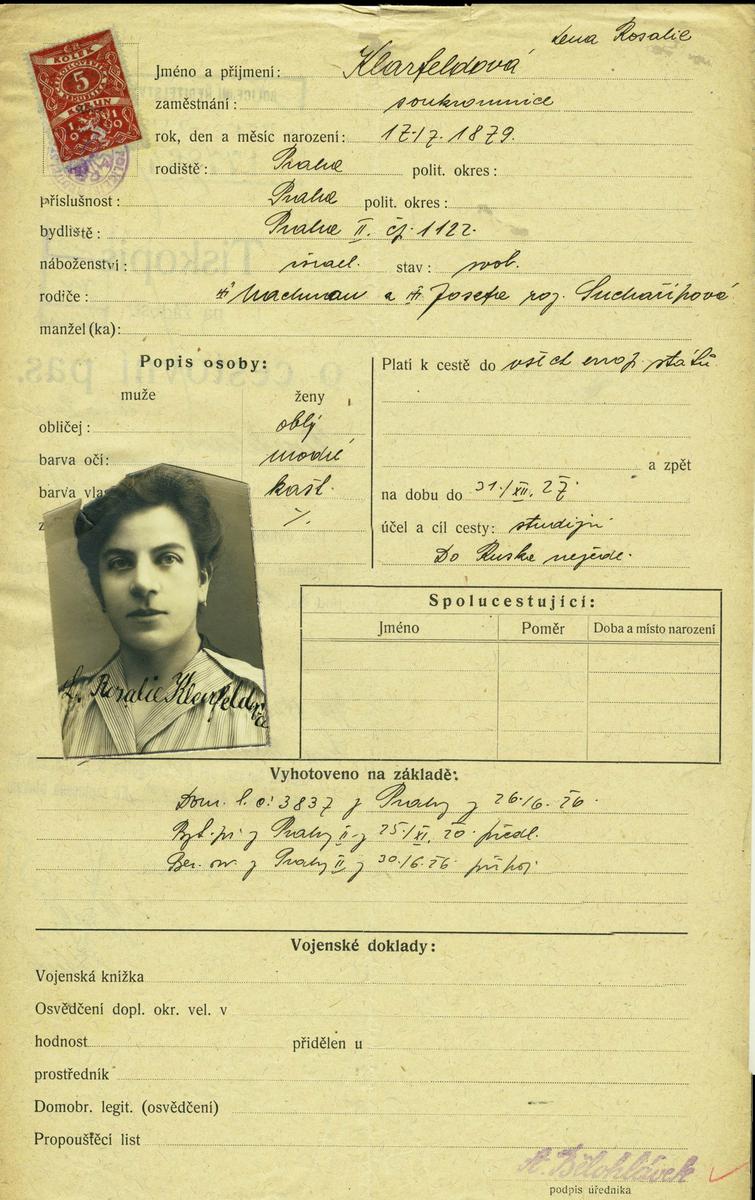 Lena Rosalie
Jméno a příjmení: Klarfeldová
zaměstnání: soukromnice
rok, den a měsíc narození: 17./7. 1879.
rodiště: Praha polit. okres:
příslušnost: Praha polit. okres:
bydliště: Praha II. čp. 1122.
náboženství: israel. stav: svob.
rodiče: Nachman a Josefa roz. Suchařípová
manžel (ka):
Popis osoby:
muže ženy
obličej: oblý
barva očí: modré
barva vla kašt.
z
Platí k cestě do všech evrop. států
a zpět
na dobu do 31./XII. 27.
účel a cíl cesty: studijní
Do Ruska nejede.
KOLEK
5
KORUN
L. Rosalie Klarfeldová
Spolucestující:
Jméno Poměr Doba a místo narození
Vyhotoveno na základě:
Dom. l. č. 3837 z Prahy z 26./6. 26.
z Prahy II z 25./XI. 20 předl.
z Prahy II z 30./6. 26.
Vojenské doklady:
Vojenská knížka
Osvědčení dopl. okr. vel. v
hodnost přidělen u
prostředník
Domobr. legit. (osvědčení)
Propouštěcí list
A. Bělohlávek
podpis úředníka